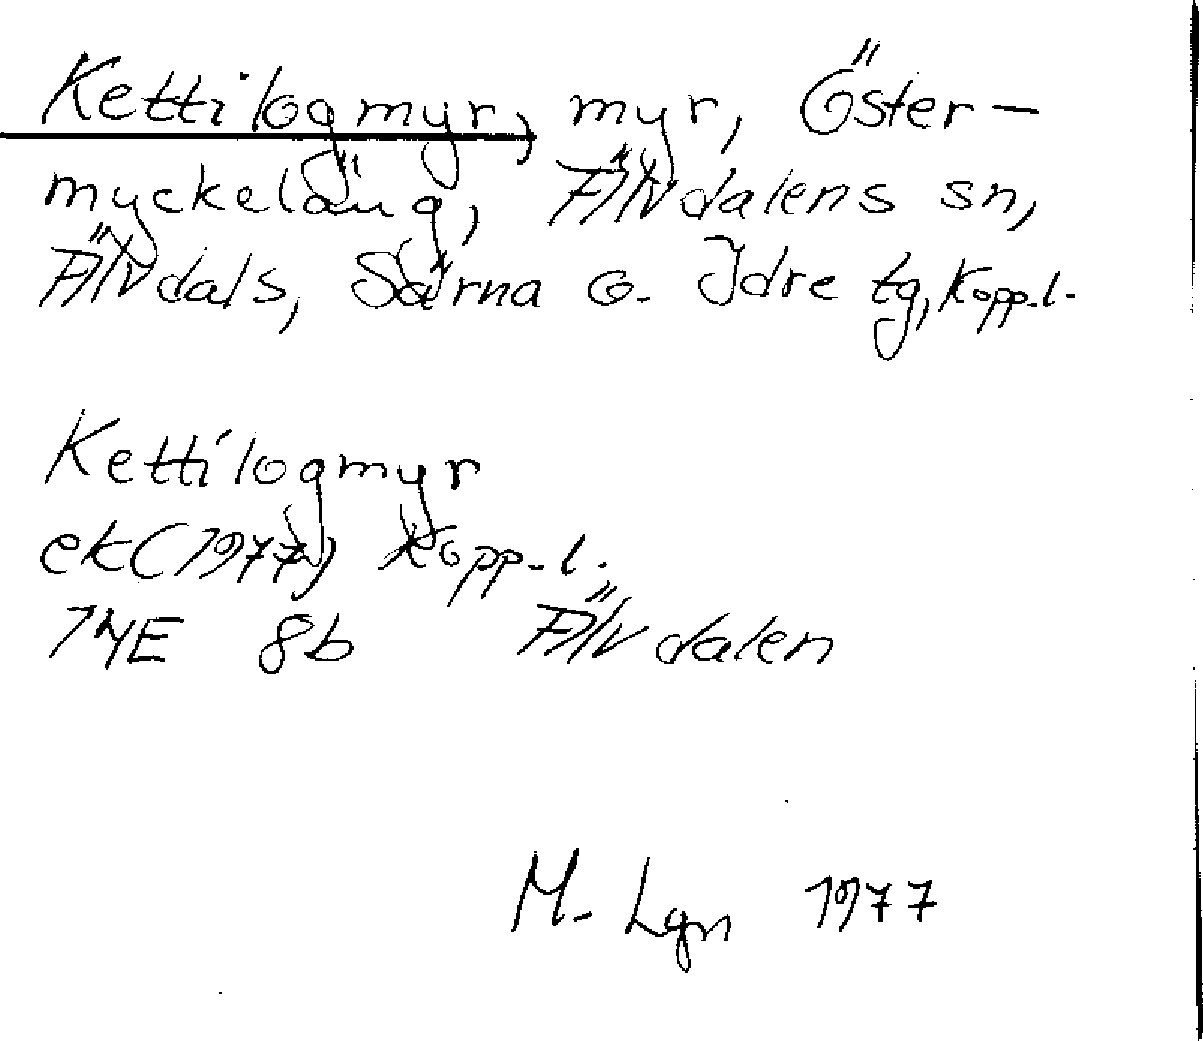 Kettilogmyr, myr, Öster-
myckeläng, Älvdalens sn,
Älvdals, Särna o. Idre tg, Kopp.l.
Kettilogmyr
ek (1977) Kopp.l.
14E 8b Älvdalen
M. Lgn 1977